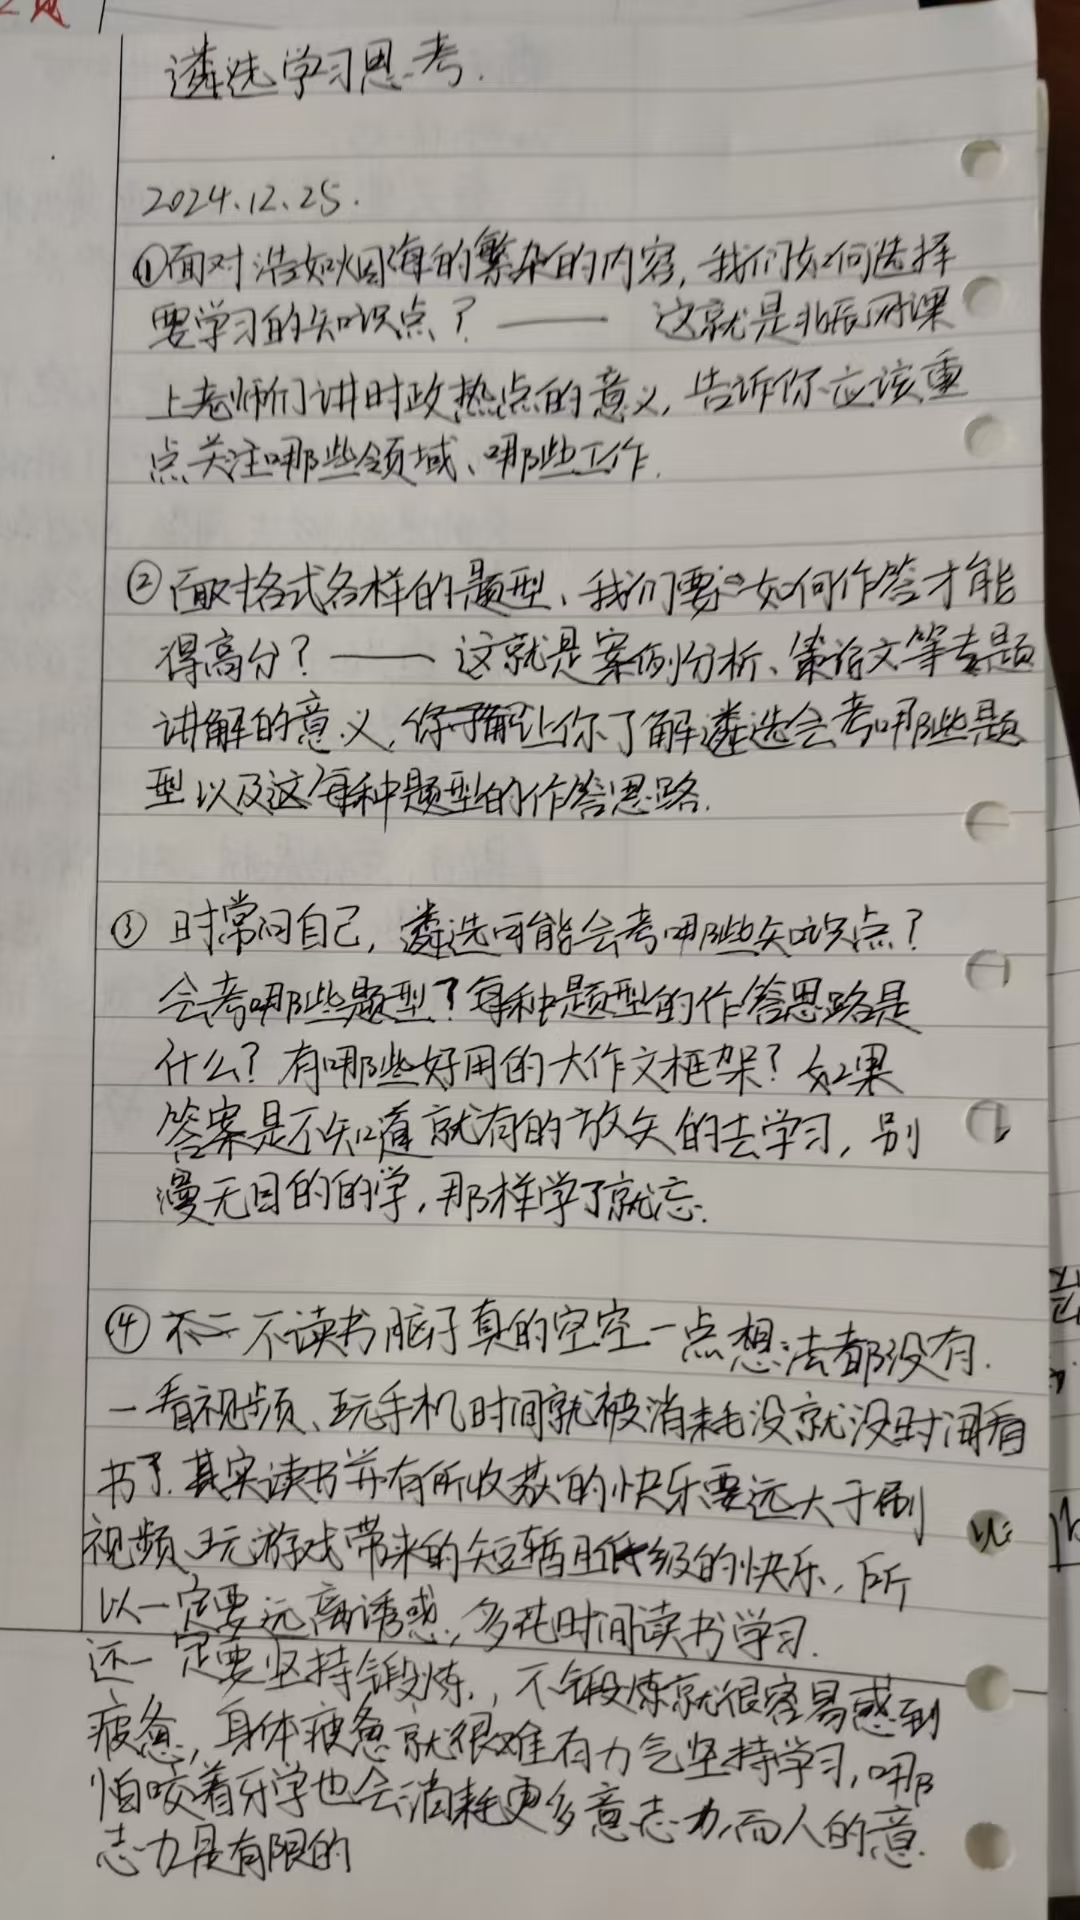 遴选学习思考.
2024.12.25.
①面对浩如烟海的繁杂的内容，我们如何选择
要学习的知识点？—— 这就是北辰网课
上老师们讲时政热点的意义，告诉你应该重
点关注哪些领域、哪些工作.
②面对格式各样的题型、我们要如何作答才能
得高分？—— 这就是案例分析、策论文等专题
讲解的意义，你了解让你了解遴选会考哪些题
型以及这每种题型的作答思路.
③ 时常问自己，遴选可能会考哪些知识点？
会考哪些题型？每种题型的作答思路是
什么？有哪些好用的大作文框架？如果
答案是不知道就有的放矢的去学习，别
漫无目的的学，那样学了就忘.
④ 不 不读书脑子真的空空一点想法都没有.
一看视频、玩手机时间就被消耗没就没时间看
书了.其实读书并有所收获的快乐要远大于刷
视频、玩游戏带来的短暂且低级的快乐，所
以一定要远离诱惑，多花时间读书学习.
还一定要坚持锻炼，不锻炼就很容易感到
疲惫，身体疲惫就很难有力气坚持学习，哪
怕咬着牙学也会消耗更多意志力，而人的意
志力是有限的